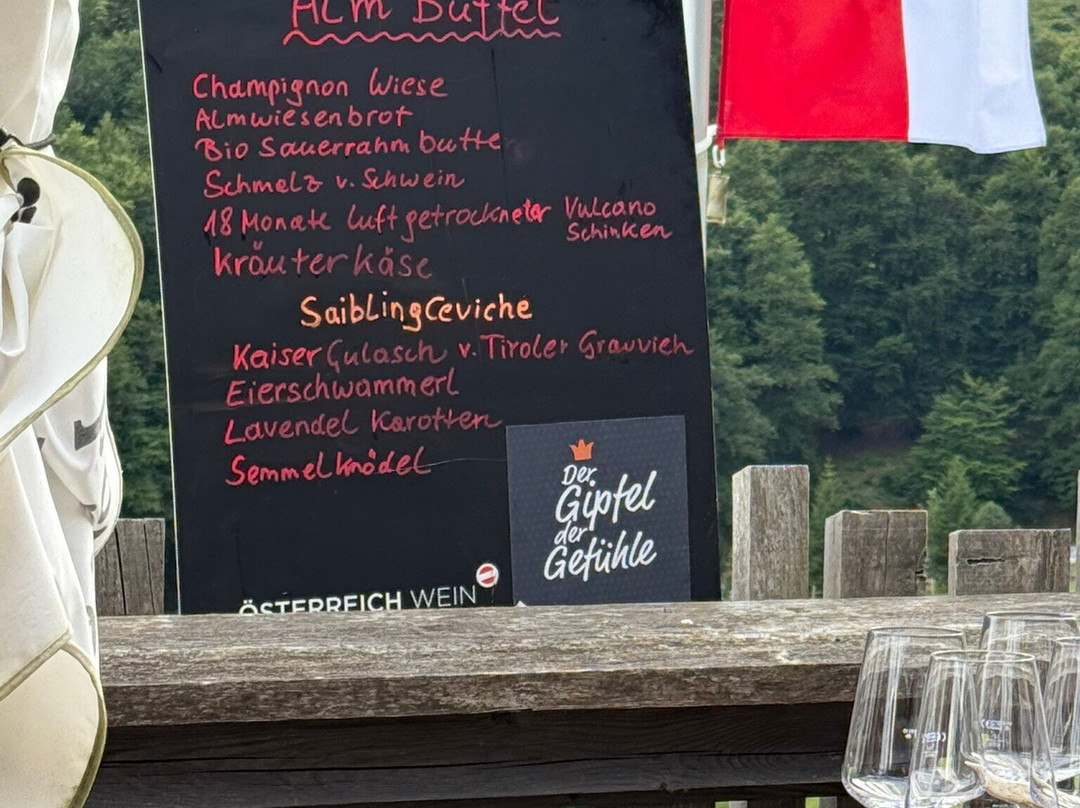 Alm Buffet
Champignon Wiese
Almwiesenbrot
Bio Sauerrahm butte
Schmalz v. Schwein
18 Monate luftgetrockneter Vulcano
Schinken
Kräuterkäse
SaiblingCeviche
Kaiser Gulasch v. Tiroler Grauvieh
Eierschwammerl
Lavendel Karotten
Semmelknödel
Der
Gipfel
der
Gefühle
ÖSTERREICH WEIN